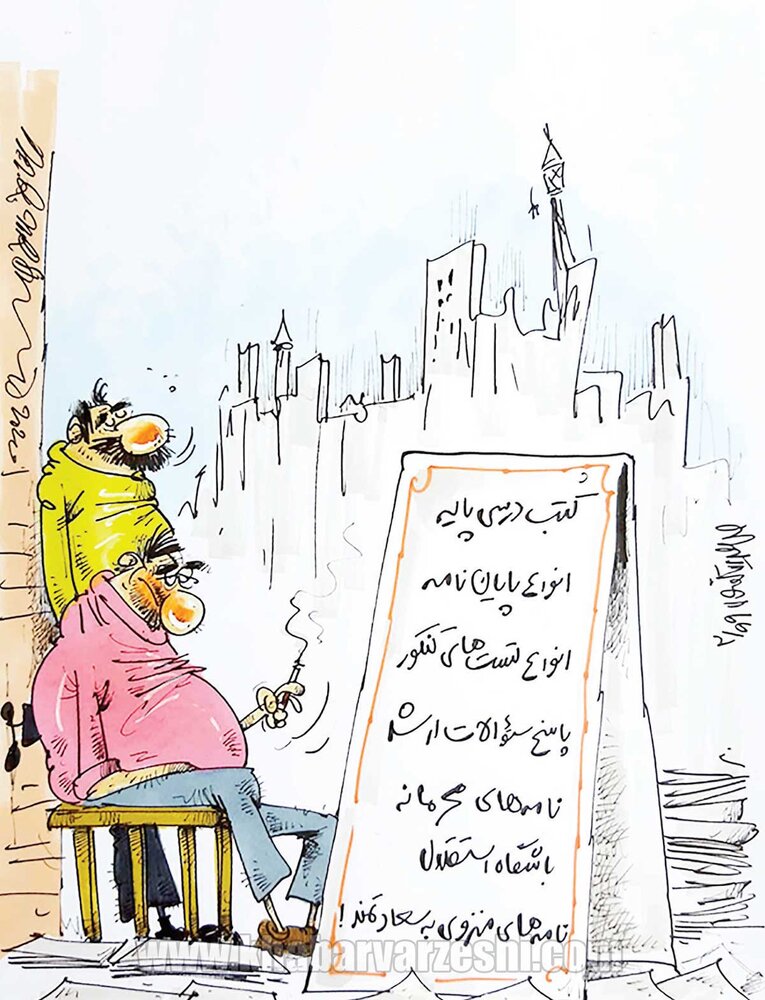 کتب درسی پایه
انواع پایان نامه
انواع تست های کنکور
پاسخ سؤالات ارشد
نامه‌های محرمانه
باشگاه استقلال
نامه‌های منزوی به سعادتمند!
www.khabarvarzeshi.com